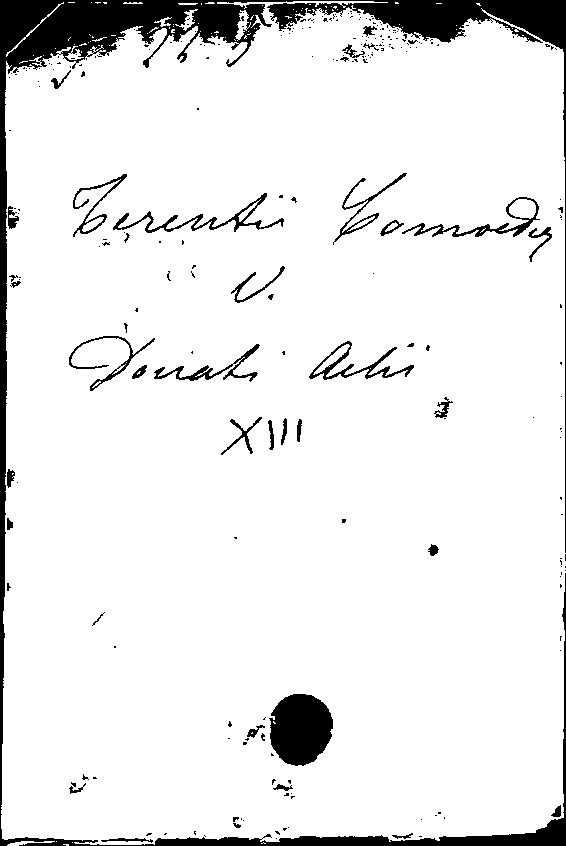 Terentii Comoediae
V.
Donati Aelii
XIII